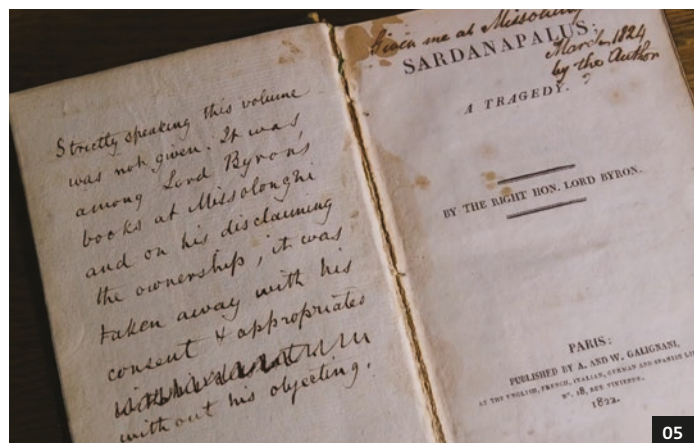 Strictly speaking this volume
was not given. It was
among Lord Byron's
books at Missolonghi
and on his disclaiming
the ownership, it was
taken away with his
consent & appropriated
without his objecting.
Given me at Missolonghi
March 1824
by the Author
SARDANAPALUS:
A TRAGEDY.
BY THE RIGHT HON. LORD BYRON.
PARIS:
PUBLISHED BY A. AND W. GALIGNANI,
AT THE ENGLISH, FRENCH, ITALIAN, GERMAN AND SPANISH
Nº. 18, RUE VIVIENNE.
1822.
05